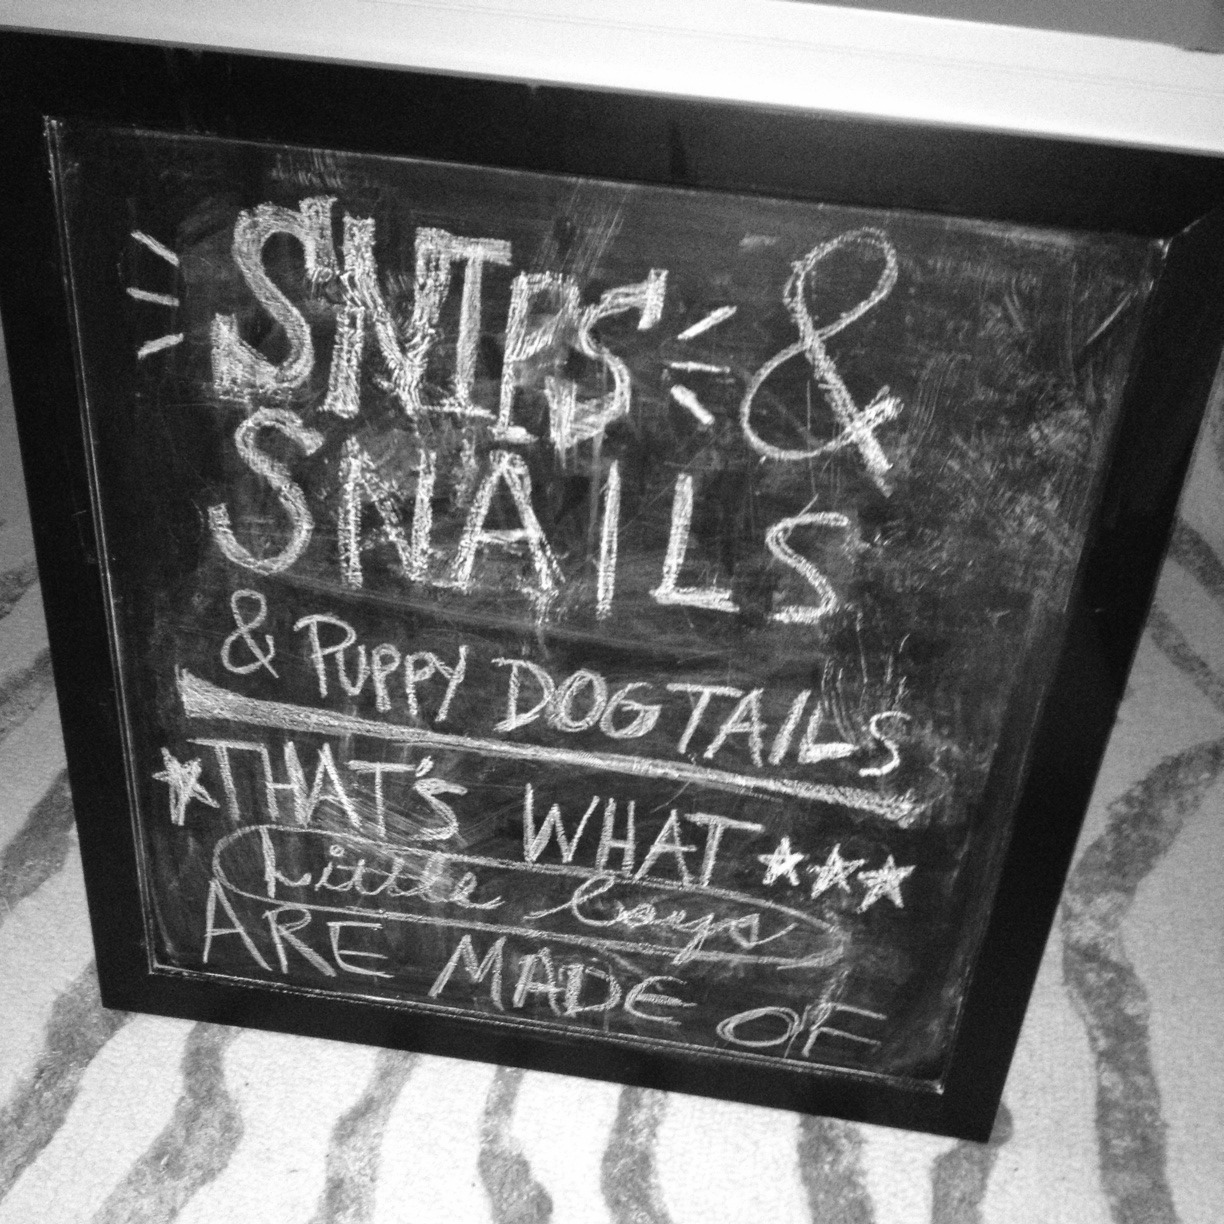 SNIPS &
SNAILS
& PUPPY DOG TAILS
THAT'S WHAT
Little boys
ARE MADE OF